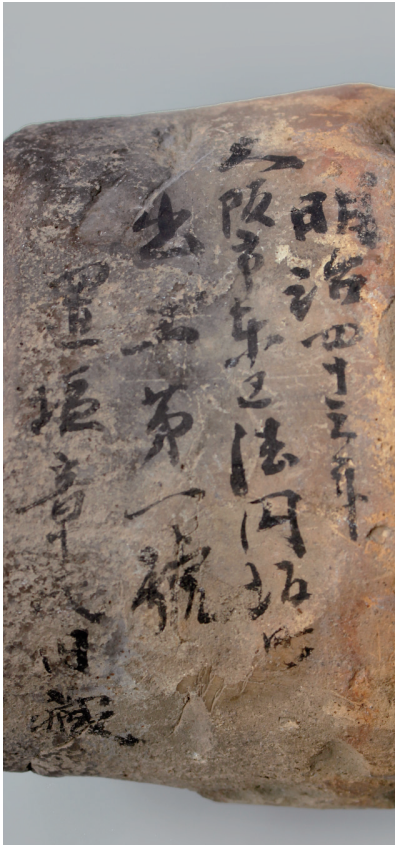 明治四十三年
大阪市東区法円坂町
出土第一號
置塩章氏旧蔵